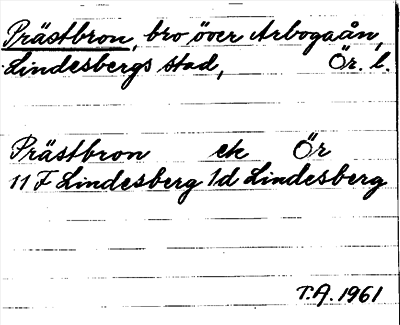 Prästbron, bro över Arbogaån,
Lindesbergs stad, Ör. l.
Prästbron ek Ör
11 F Lindesberg 1d Lindesberg
T.A. 1961